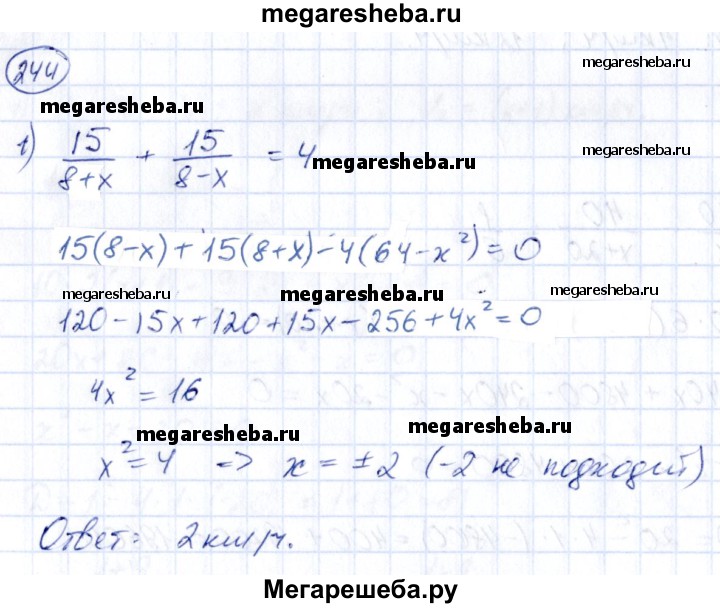 megaresheba.ru
244
megaresheba.ru
megaresheba.ru
1) 15/(8+x) + 15/(8-x) = 4
megaresheba.ru
megaresheba.ru
15(8-x) + 15(8+x) - 4(64-x²) = 0
megaresheba.ru
megaresheba.ru
megaresheba.ru
120 - 15x + 120 + 15x - 256 + 4x² = 0
4x² = 16
megaresheba.ru
megaresheba.ru
x² = 4 => x = ±2 (-2 не подходит)
Ответ: 2 км/ч.
Мегарешеба.ру